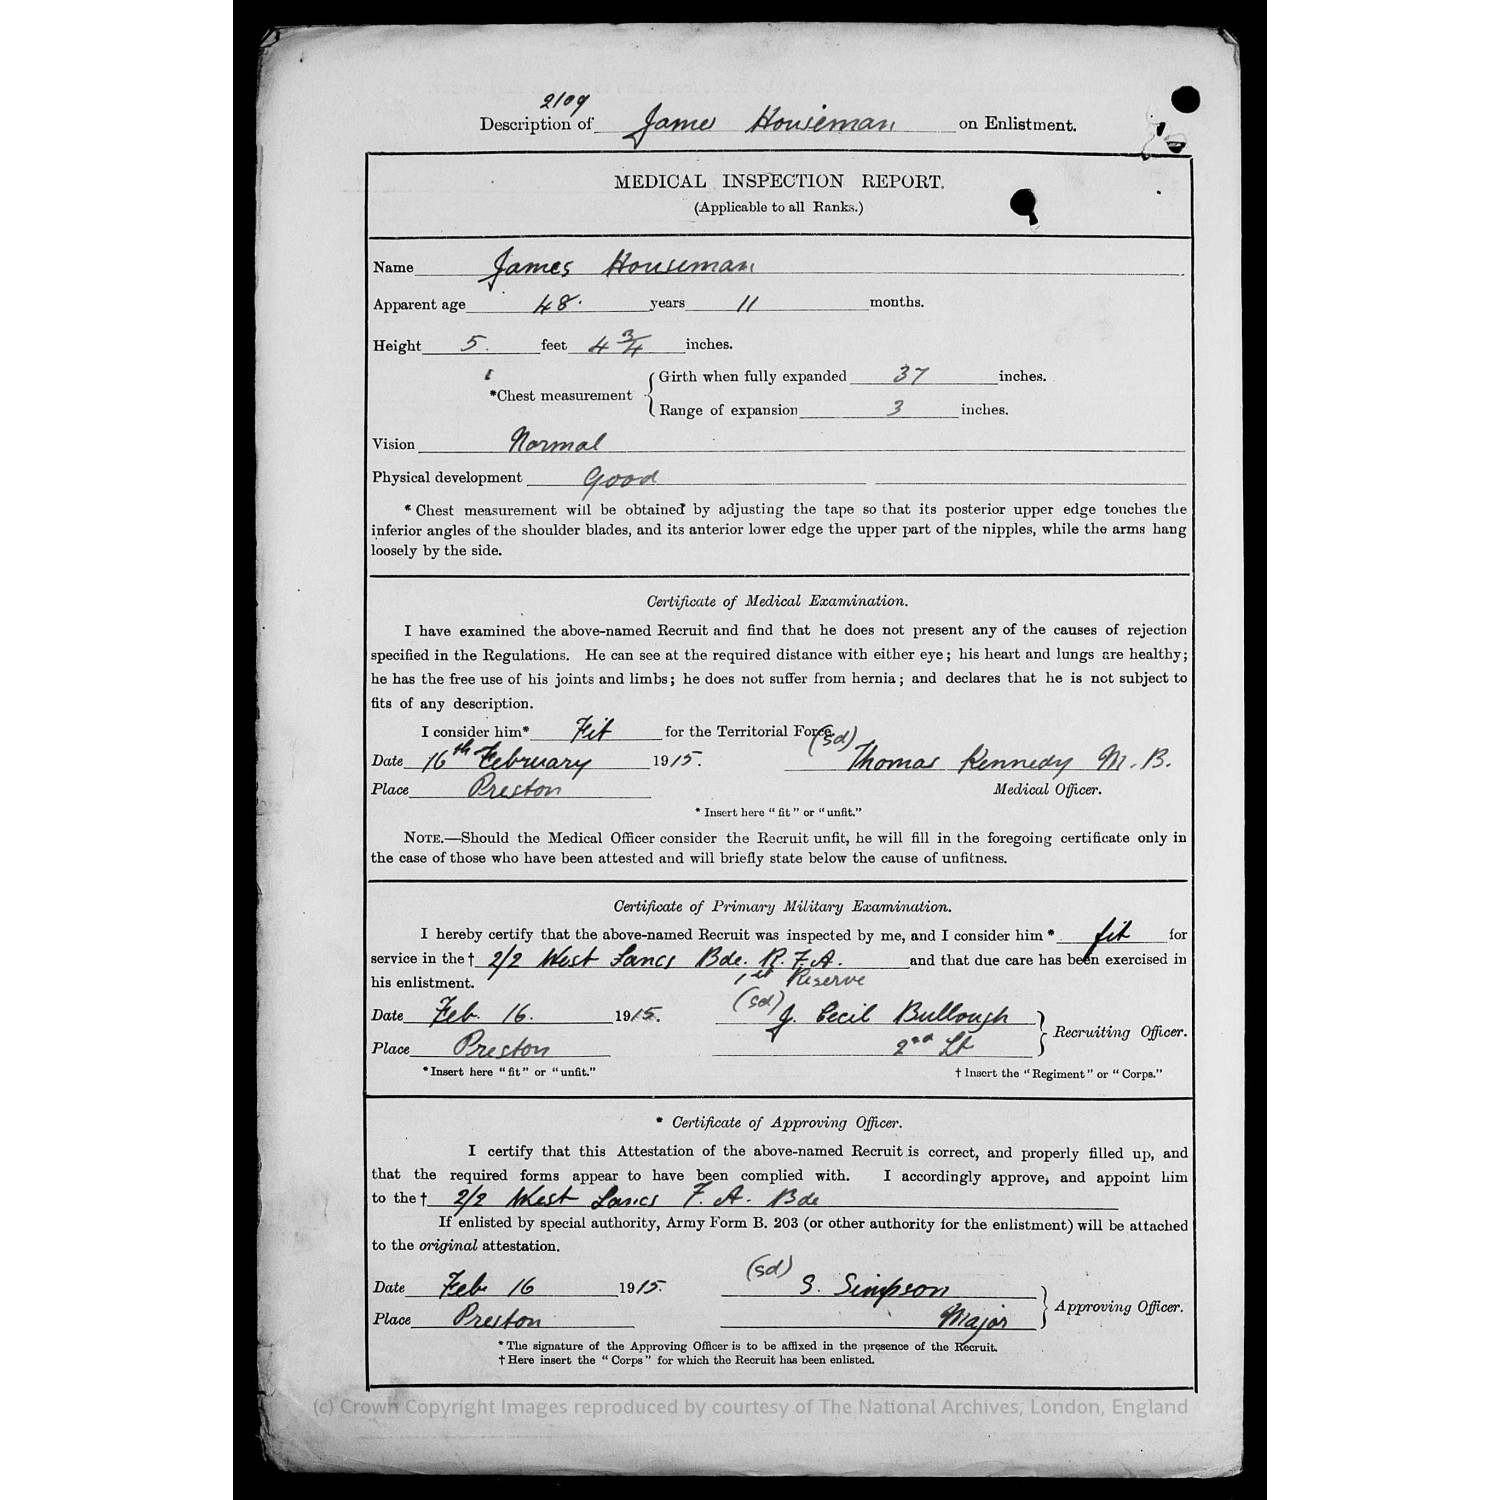 2109
Description of James Houseman on Enlistment.
MEDICAL INSPECTION REPORT.
(Applicable to all Ranks.)
Name James Houseman
Apparent age 48. years 11 months.
Height 5. feet 4 3/4 inches.
*Chest measurement { Girth when fully expanded 37 inches.
Range of expansion 3 inches.
Vision Normal
Physical development Good
* Chest measurement will be obtained by adjusting the tape so that its posterior upper edge touches the
inferior angles of the shoulder blades, and its anterior lower edge the upper part of the nipples, while the arms hang
loosely by the side.
Certificate of Medical Examination.
I have examined the above-named Recruit and find that he does not present any of the causes of rejection
specified in the Regulations. He can see at the required distance with either eye; his heart and lungs are healthy;
he has the free use of his joints and limbs; he does not suffer from hernia; and declares that he is not subject to
fits of any description.
I consider him* Fit for the Territorial Force.
Date 16th February 1915. (sd) Thomas Kennedy M.B.
Place Preston Medical Officer.
* Insert here "fit" or "unfit."
NOTE.—Should the Medical Officer consider the Recruit unfit, he will fill in the foregoing certificate only in
the case of those who have been attested and will briefly state below the cause of unfitness.
Certificate of Primary Military Examination.
I hereby certify that the above-named Recruit was inspected by me, and I consider him * fit for
service in the † 2/2 West Lancs Bde. R.F.A. and that due care has been exercised in
his enlistment. 1st Reserve
Date Feb. 16. 1915. (sd) J. Cecil Bullough } Recruiting Officer.
Place Preston 2nd Lt
* Insert here "fit" or "unfit." † Insert the "Regiment" or "Corps."
* Certificate of Approving Officer.
I certify that this Attestation of the above-named Recruit is correct, and properly filled up, and
that the required forms appear to have been complied with. I accordingly approve, and appoint him
to the † 2/2 West Lancs F.A. Bde
If enlisted by special authority, Army Form B. 203 (or other authority for the enlistment) will be attached
to the original attestation.
Date Feb 16 1915. (sd) S. Simpson } Approving Officer.
Place Preston Major
* The signature of the Approving Officer is to be affixed in the presence of the Recruit.
† Here insert the "Corps" for which the Recruit has been enlisted.
(c) Crown Copyright Images reproduced by courtesy of The National Archives, London, England